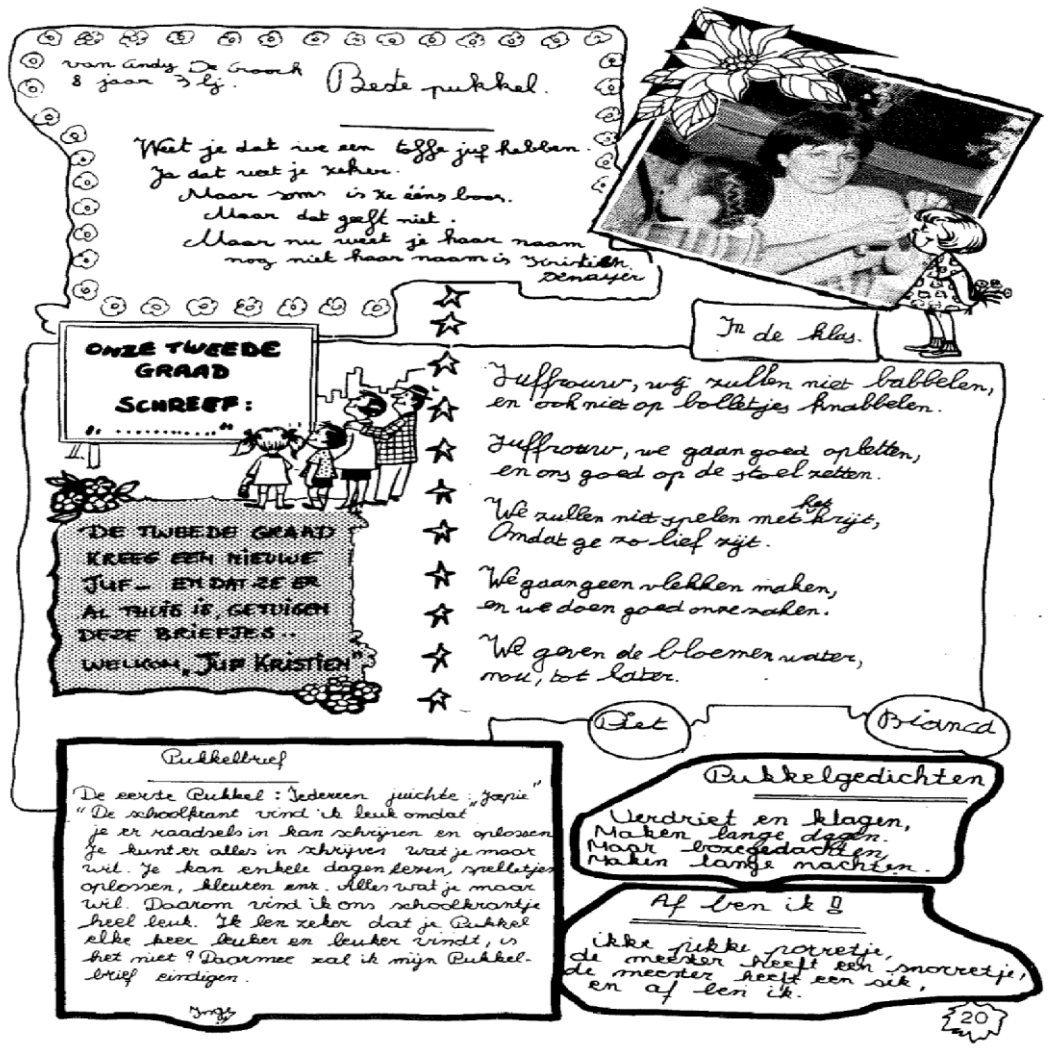 van Andy De Groock
8 jaar 3 lj.
Beste pukkel.
Weet je dat we een toffe juf hebben.
Ja dat weet je zeker.
Maar soms is ze ééns boos.
Maar dat geeft niet.
Maar nu weet je haar naam
nog niet haar naam is Kristien
Denayer
ONZE TWEEDE
GRAAD
SCHREEF:
".............."
DE TWEEDE GRAAD
KREEG EEN NIEUWE
JUF_ EN DAT ZE ER
AL THUIS IS, GETUIGEN
DEZE BRIEFJES..
WELKOM „JUF KRISTIEN"
In de klas.
Juffrouw, wij zullen niet babbelen,
en ook niet op bolletjes knabbelen.
Juffrouw, we gaan goed opletten,
en ons goed op de stoel zetten.
We zullen niet spelen met het krijt,
Omdat ge zo lief zijt.
We gaan geen vlekken maken,
en we doen goed onze zaken.
We geven de bloemen water,
nou, tot later.
Piet
Bianca
Pukkelbrief
De eerste Pukkel : Iedereen juichte „Joepie"
"De schoolkrant vind ik leuk omdat
je er raadsels in kan schrijven en oplossen
Je kunt er alles in schrijven wat je maar
wil. Je kan enkele dagen lezen, spelletjes
oplossen, kleuren enz. Alles wat je maar
wil. Daarom vind ik ons schoolkrantje
heel leuk. Ik ben zeker dat je Pukkel
elke keer leuker en leuker vindt, is
het niet? Daarmee zal ik mijn Pukkel-
brief eindigen.
Inge
Pukkelgedichten
Verdriet en klagen,
Maken lange dagen.
Maar boze gedachten,
Maken lange nachten.
Af ben ik!!
ikke pikke porretje,
de meester heeft een snorretje,
de meester heeft een sik,
en af ben ik.
20